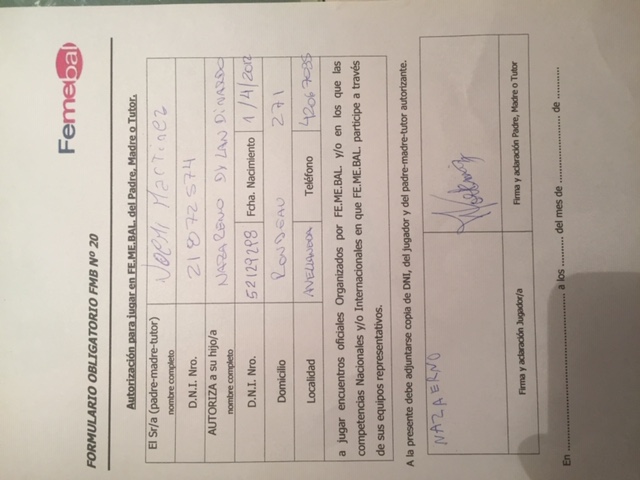 Femebal
FORMULARIO OBLIGATORIO FMB Nº 20
Autorización para jugar en FE.ME.BAL. del Padre, Madre o Tutor.
El Sr/a (padre-madre-tutor) nombre completo NOEMI MARTINEZ
D.N.I. Nro. 21872574
AUTORIZA a su hijo/a nombre completo NAZARENO DYLAN DINARDO
D.N.I. Nro. 52129298 Fcha. Nacimiento 1/4/2012
Domicilio RONDEAU 271
Localidad AVELLANEDA Teléfono 42067085
a jugar encuentros oficiales Organizados por FE.ME.BAL. y/o en los que las
competencias Nacionales y/o Internacionales en que FE.ME.BAL. participe a través
de sus equipos representativos.
A la presente debe adjuntarse copia de DNI, del jugador y del padre-madre-tutor autorizante.
NAZAERNO
Firma y aclaración Jugador/a Firma y aclaración Padre, Madre o Tutor
En .......... a los .......... del mes de .......... de ..........